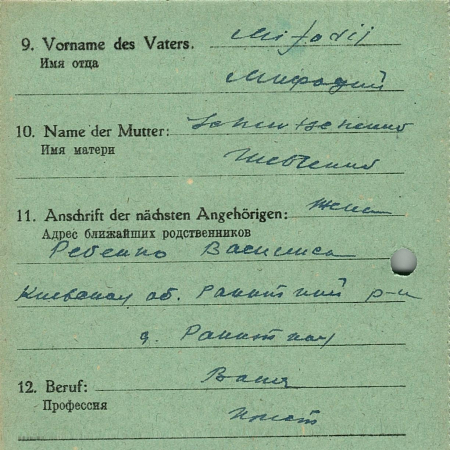 9. Vorname des Vaters. Mifodij
Имя отца
Мифодий
10. Name der Mutter:
Имя матери
Шевченко
11. Anschrift der nächsten Angehörigen: Жена
Адрес ближайших родственников
Ребенко Василиса
Киевская об. Ракитский р-н
д. Ракитная
12. Beruf:
Профессия